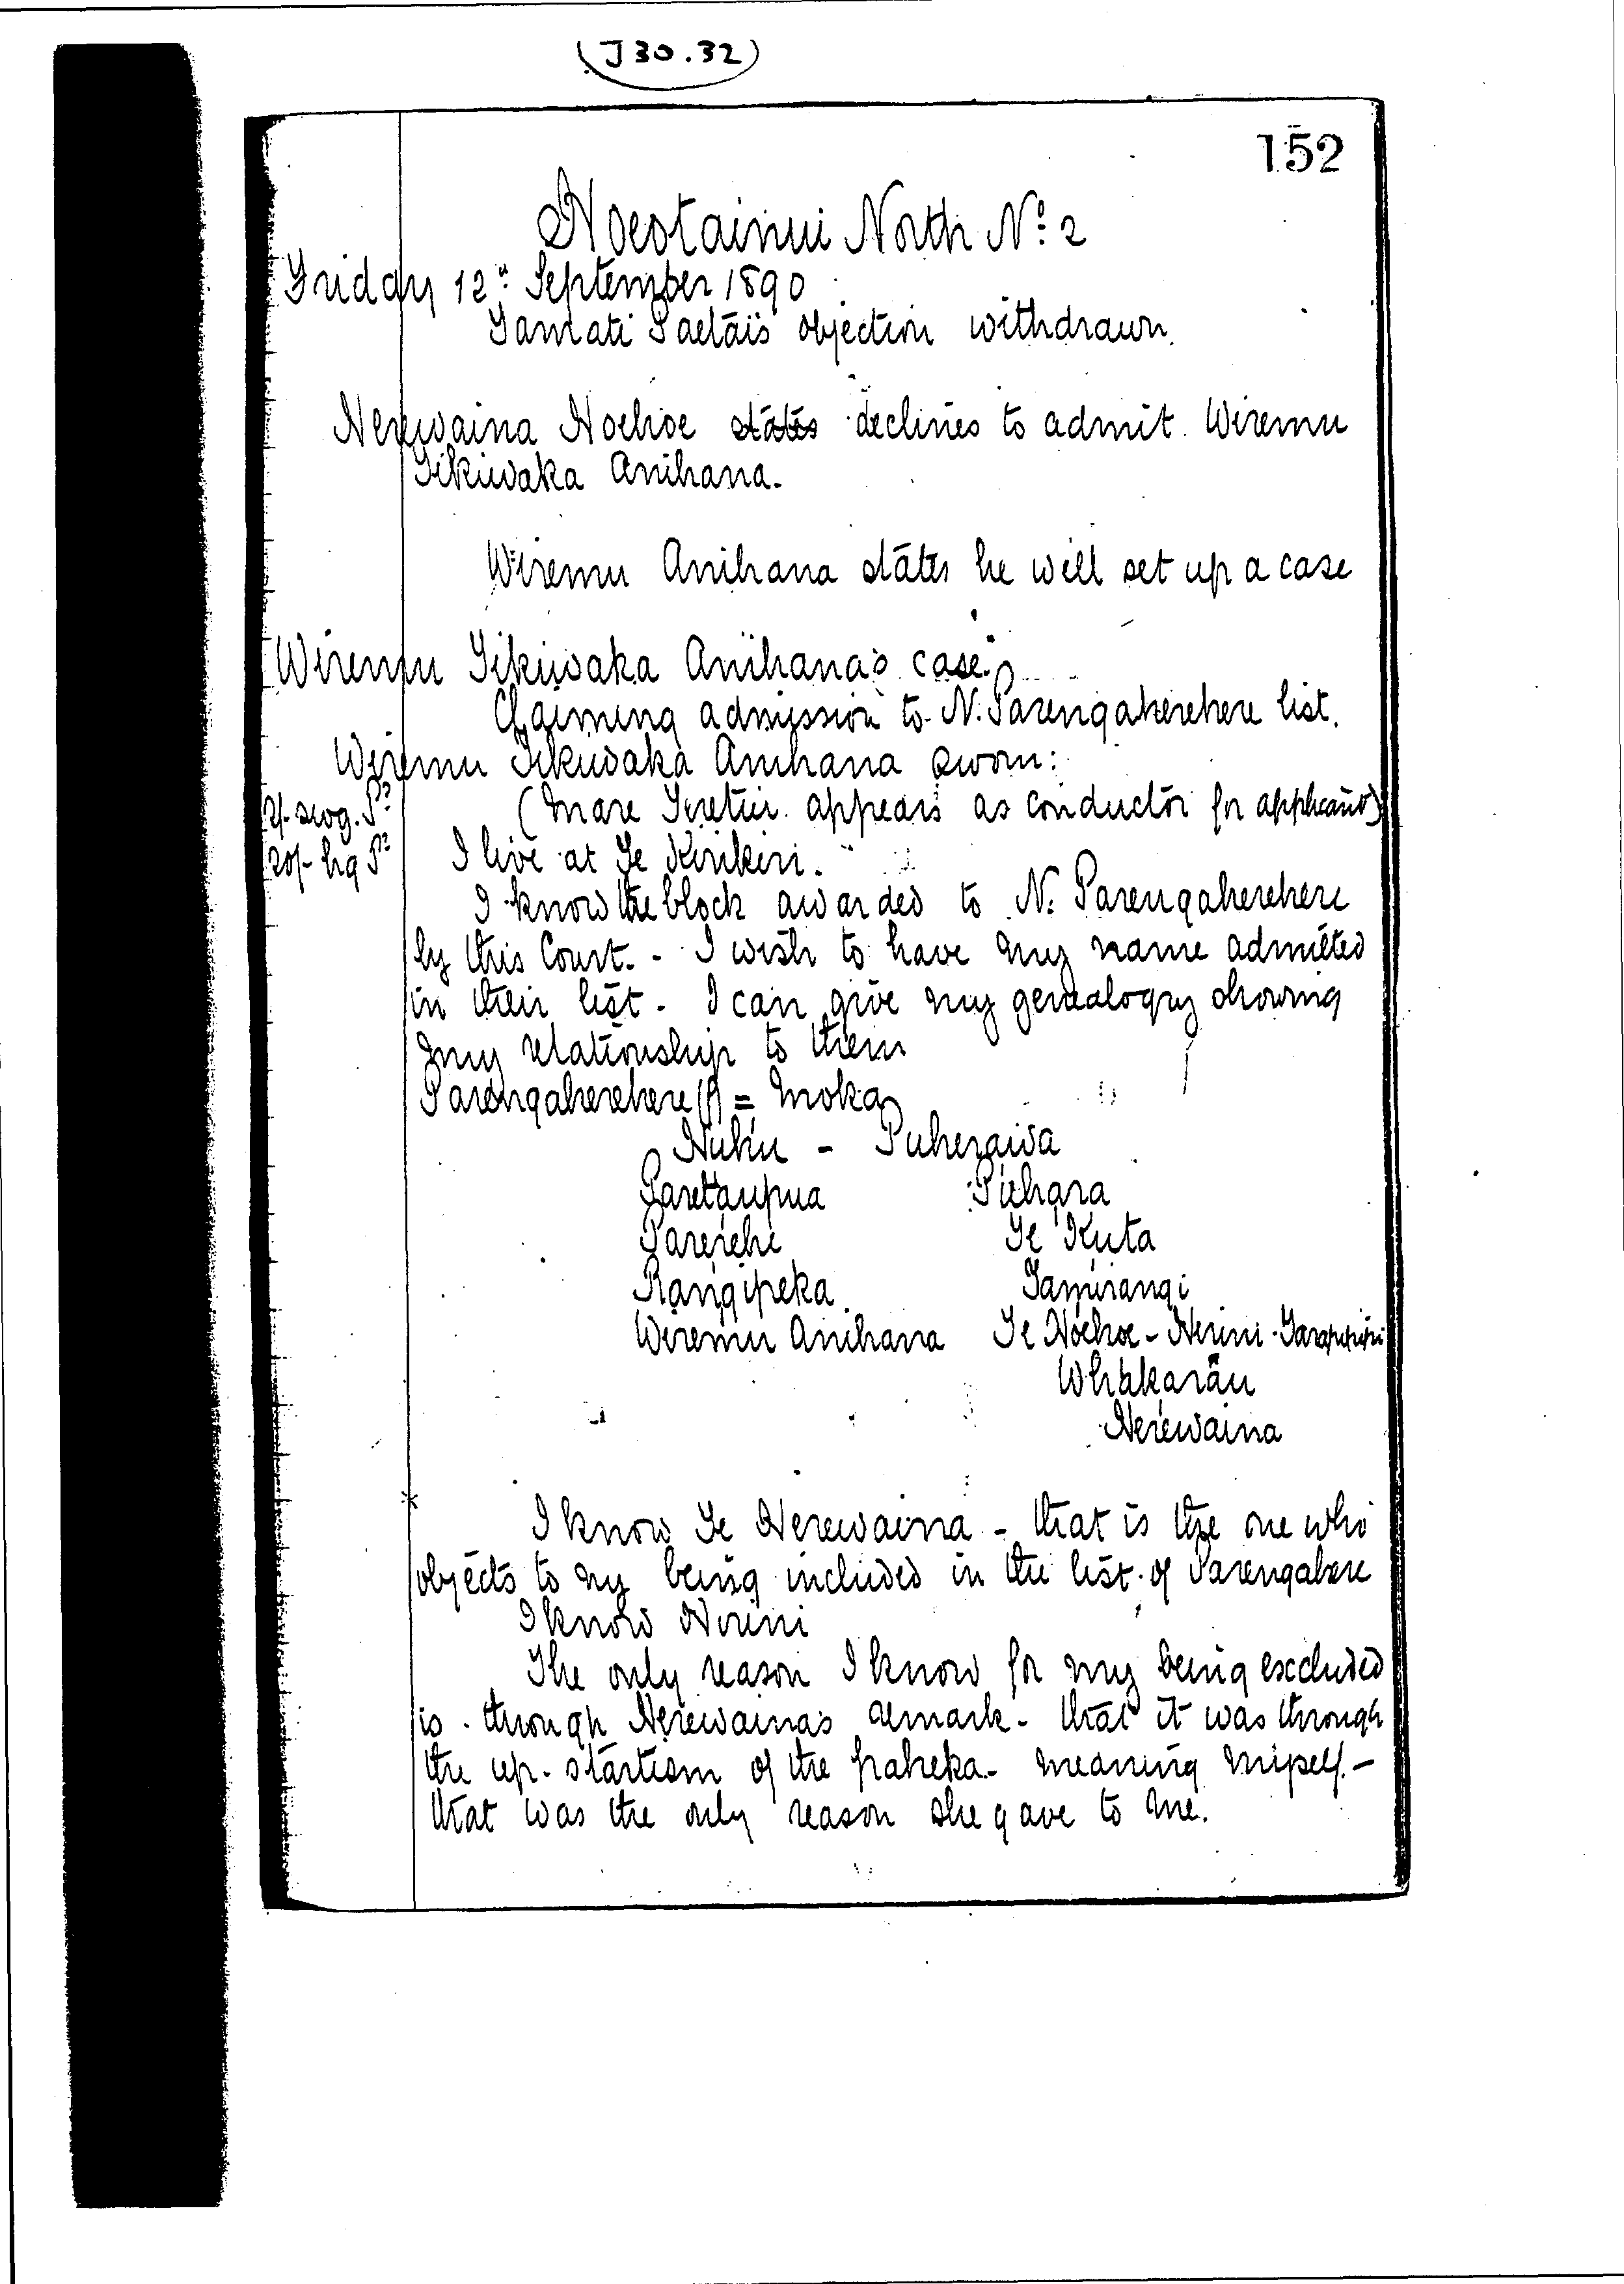 (J30.32)
152
Hoeotainui North No. 2
Friday 12" September 1890
Tamati Paetai's objection withdrawn.
Nerewaina Hoehoe states declines to admit Wiremu
Tikiwaka Anihana.
Wiremu Anihana states he will set up a case
Wiremu Tikiwaka Anihana's case.
Claiming admission to N. Parengaherehere list.
Wiremu Tikiwaka Anihana sworn:
2/- swg. Pd
20/- hg Pd
(Mare Teretiu appears as conductor for applicants)
I live at Te Kirikiri.
I know the block awarded to N. Parengaherehere
by this Court. - I wish to have my name admitted
in their list. I can give my genealogy showing
my relationship to them
Parengaherehere (f) = Moka
Nuku - Puherawa
Paretaupua Puhara
Parerehe Te Kuta
Rangipeka Tamirangi
Wiremu Anihana Te Hoehoe - Nerini -
Whakarau
Nerewaina
I know Te Nerewaina - that is the one who
objects to my being included in the list of Parengahere
I know Nerini
The only reason I know for my being excluded
is through Nerewaina's remark - that it was through
the up-startism of the paheka - meaning myself -
that was the only reason she gave to me.